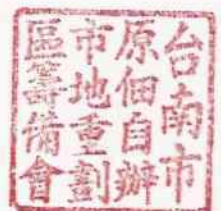 台南市
原佃自辦
市地重劃
區籌備會